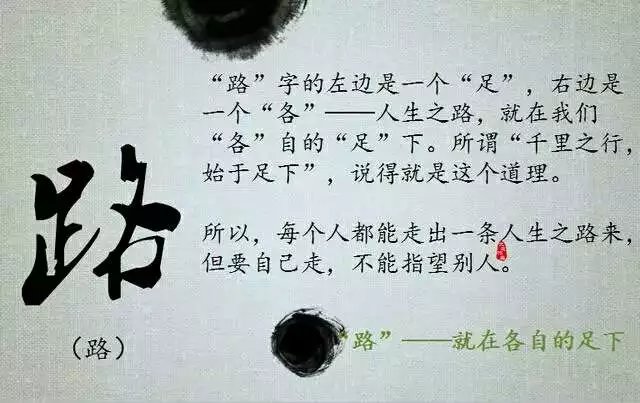 路
（路）
“路”字的左边是一个“足”，右边是
一个“各”——人生之路，就在我们
“各”自的“足”下。所谓“千里之行，
始于足下”，说得就是这个道理。
所以，每个人都能走出一条人生之路来，
但要自己走，不能指望别人。
“路”——就在各自的足下